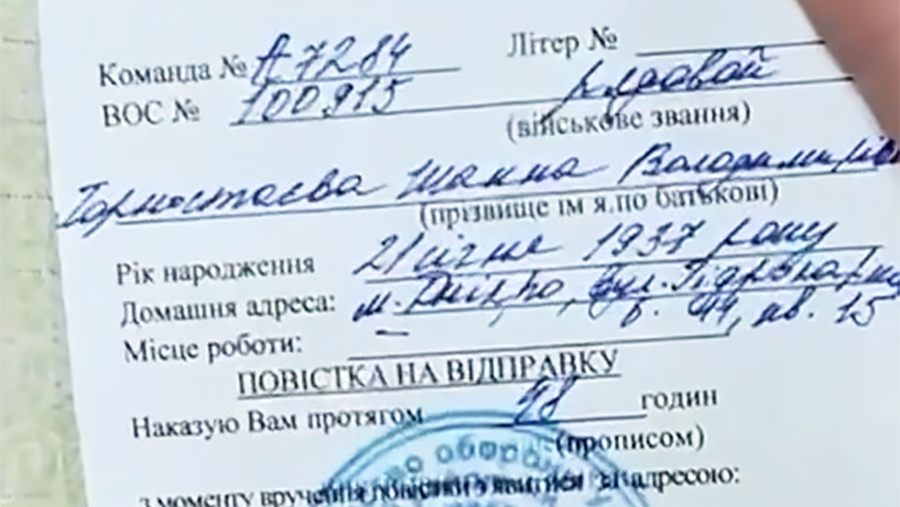 Команда № А7284 Літер №
ВОС № 100915 рядовой
(військове звання)
Горностаєва Жанна Володимирівн
(прізвище ім я.по батькові)
Рік народження 21 січня 1937 року
Домашня адреса: м. Дніпро, вул.
44, кв. 15
Місце роботи: –
ПОВІСТКА НА ВІДПРАВКУ
Наказую Вам протягом 48 годин
(прописом)
во оборон
з моменту вручення повістки з'явитися за адресою: